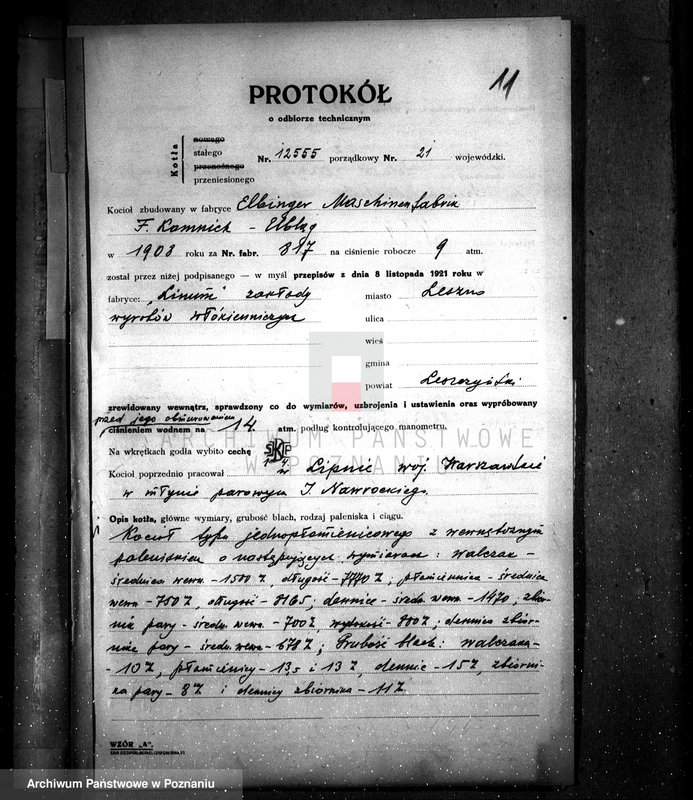 11
PROTOKÓŁ
o odbiorze technicznym
Kotła
nowego
stałego
przenośnego
przeniesionego
Nr. 12555 porządkowy Nr. 21 wojewódzki.
Kocioł zbudowany w fabryce Elbinger Maschinenfabrik
F. Komnick - Elbląg
w 1908 roku za Nr. fabr. 817 na ciśnienie robocze 9 atm.
został przez niżej podpisanego — w myśl przepisów z dnia 8 listopada 1921 roku w
fabryce: "Linum" zakłady
miasto Leszno
wyrobów włókienniczych
ulica
wieś
gmina
powiat Leszczyński
zrewidowany wewnątrz, sprawdzony co do wymiarów, uzbrojenia i ustawienia oraz wypróbowany
przed jego obmurowaniem
ciśnieniem wodnem na 14 atm. podług kontrolującego manometru.
ARCHIWUM PAŃSTWOWE
W POZNANIU
Na wkrętkach godła wybito cechę
Kocioł poprzednio pracował w Lipnie woj. Warszawskie
w młynie parowym J. Nawrockiego.
Opis kotła, główne wymiary, grubość blach, rodzaj paleniska i ciągu.
Kocioł typu jednopłomienicowego z wewnętrznym
paleniskiem o następujących wymiarach: walczak -
średnica wewn. - 1500 długość - 7770 płomiennica - średnica
wewn. - 750 długość - 8165; dennice - średn. wewn. - 1470; zbior-
nik pary - średn. wewn. - 700 wysokość - 800 dennica zbior-
nika pary - średn. wewn. - 678 Grubość blach: walczaka -
- 10 płomienicy - 13,5 i 13 dennic - 15 zbiorni-
ka pary - 8 i dennicy zbiornika - 11
WZÓR „A".
Archiwum Państwowe w Poznaniu